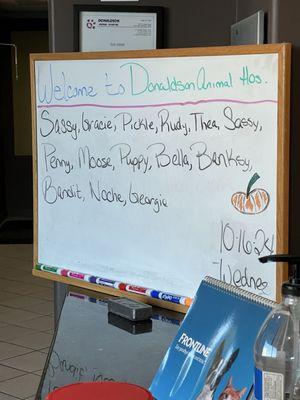 DONALDSON
Welcome to Donaldson Animal Hos.
Sassy, Gracie, Pickle, Rudy, Thea, Sassy,
Penny, Moose, Puppy, Bella, Banksy,
Bandit, Noche, Georgia
10-16-24
-Wednes
EXPO
FRONTLINE